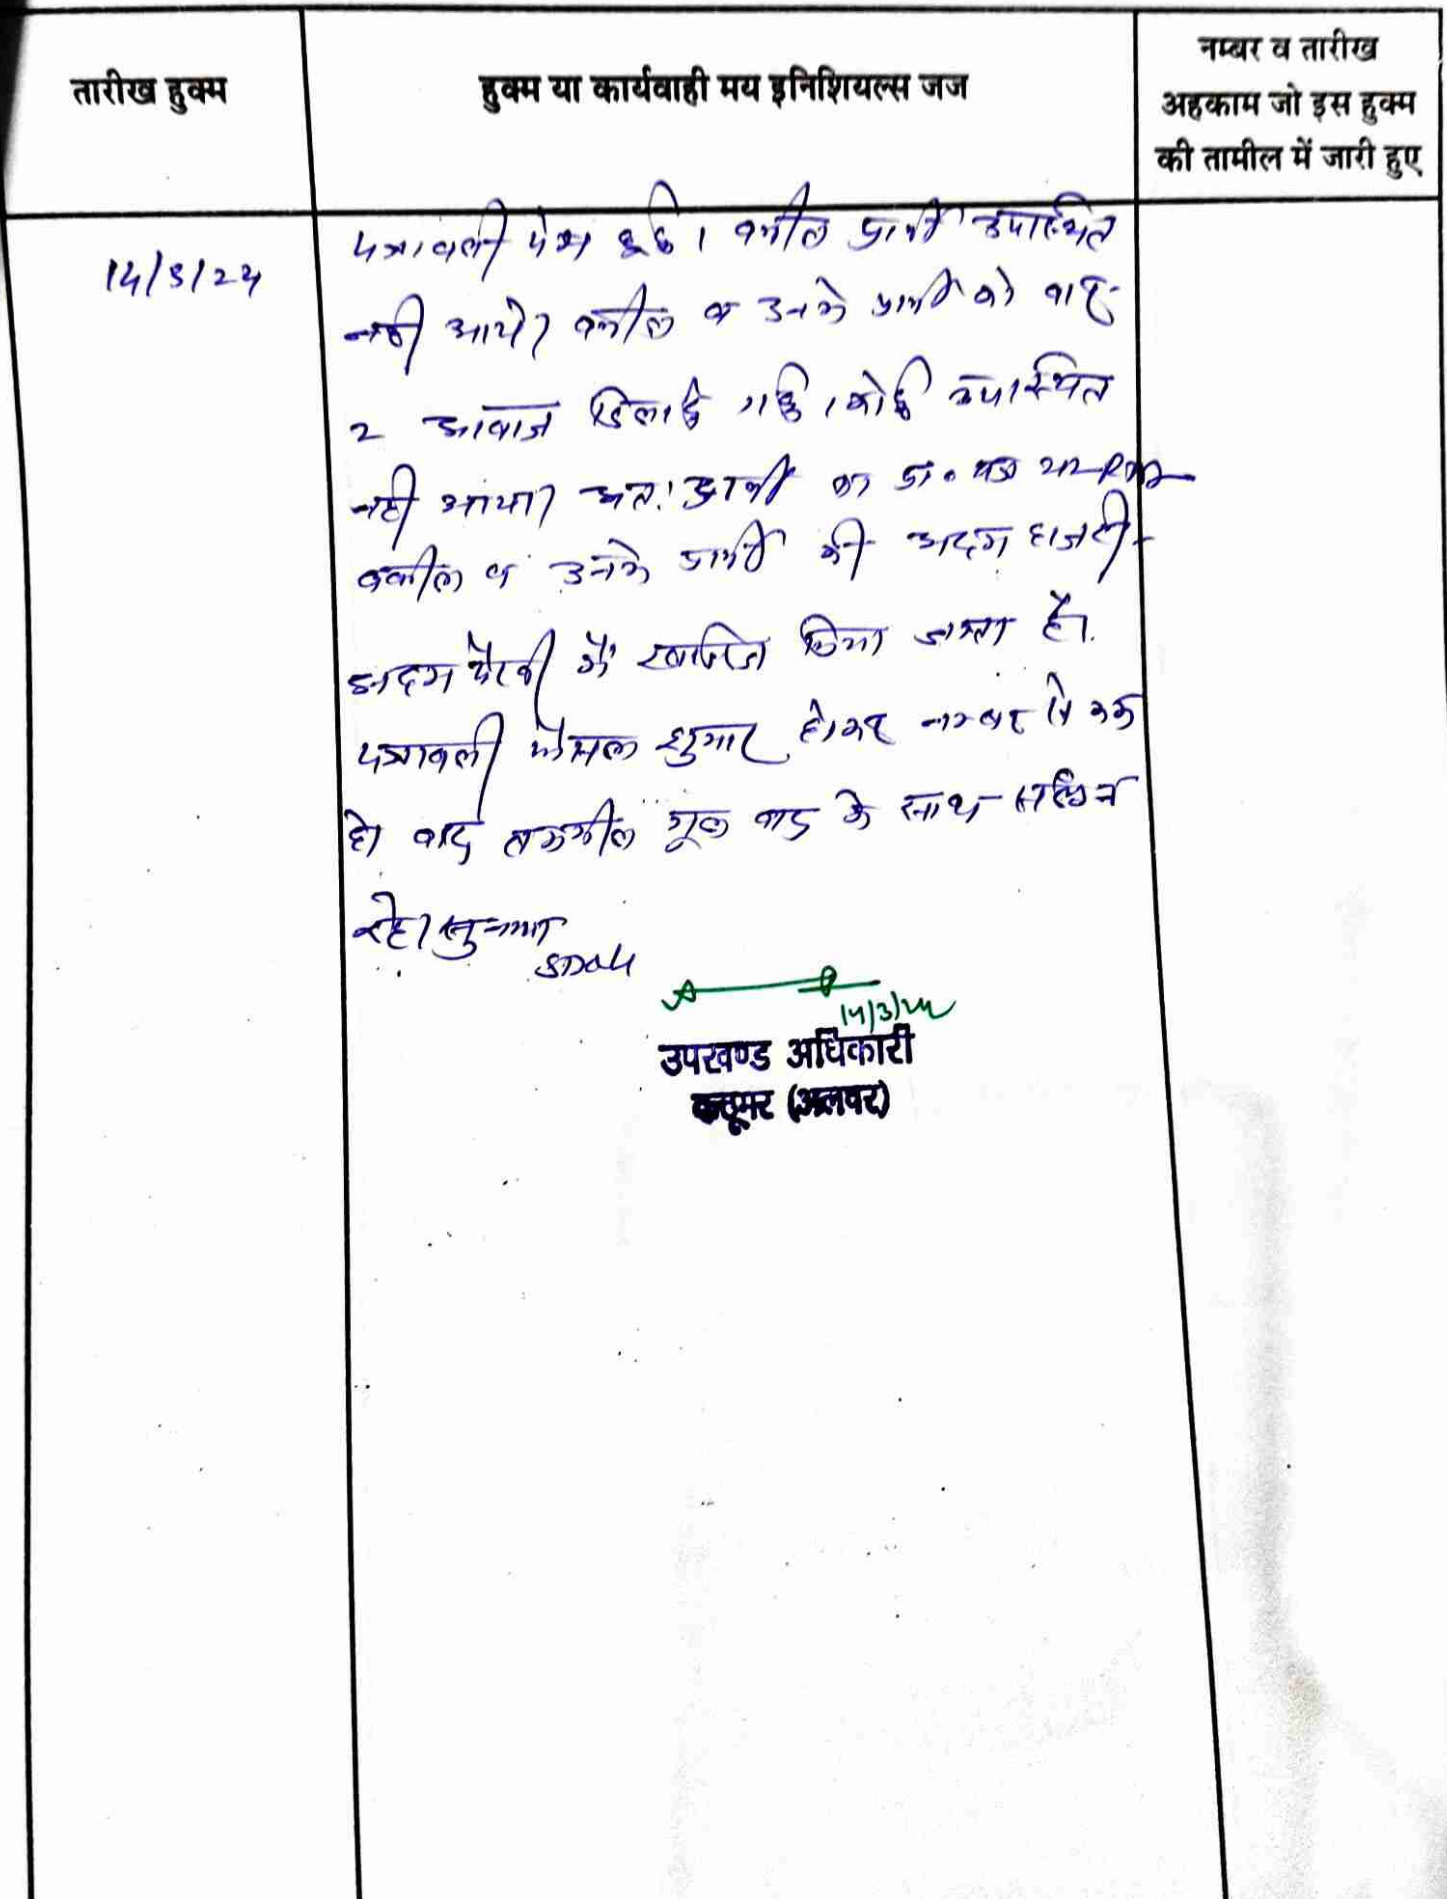 तारीख हुक्म
हुक्म या कार्यवाही मय इनिशियल्स जज
नम्बर व तारीख
अहकाम जो इस हुक्म
की तामील में जारी हुए
14/3/24
पत्रावली पेश हुई। वकील प्रार्थी उपस्थित
नही आये। वकील व उनके प्रार्थी को बार-
2 आवाज दिलाई गई। कोई उपस्थित
नही आया। अतः प्रार्थी का प्रा० पत्र
वकील व उनके प्रार्थी की अदम हाजरी
अदम पैरवी में खारिज किया जाता है।
पत्रावली फैसल शुमार होकर नम्बर से कम
हो वाद तकमील मूल वाद के साथ संलग्न
रहे।
14/3/24
उपखण्ड अधिकारी
कठूमर (अलवर)